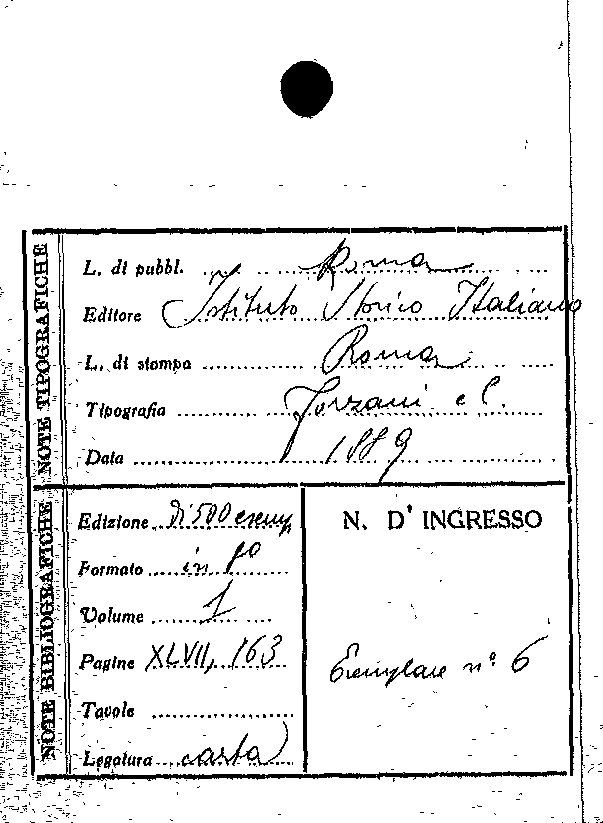 NOTE TIPOGRAFICHE
L. di pubbl. Roma
Editore Istituto Storico Italiano
L. di stampa Roma
Tipografia Forzani e C.
Data 1889
NOTE BIBLIOGRAFICHE
Edizione di 500 esemp
Formato in f°
Volume 1
Pagine XLVII, 163
Tavole
Legatura carta
N. D' INGRESSO
Esemplare n° 6